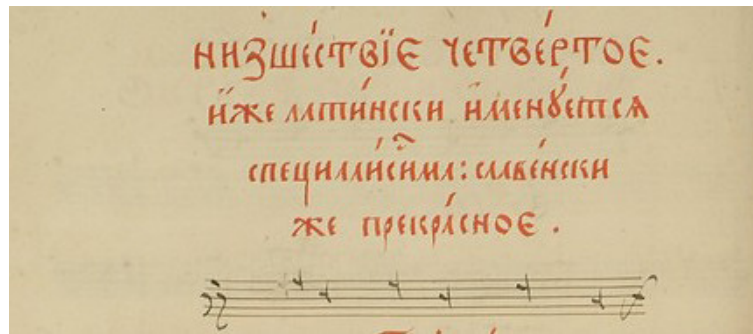 низше́ствїе четве́ртое.
и҆́же лати́нски и҆менꙋ́етсѧ
специали́сима: славе́нски
же прекра́сное.